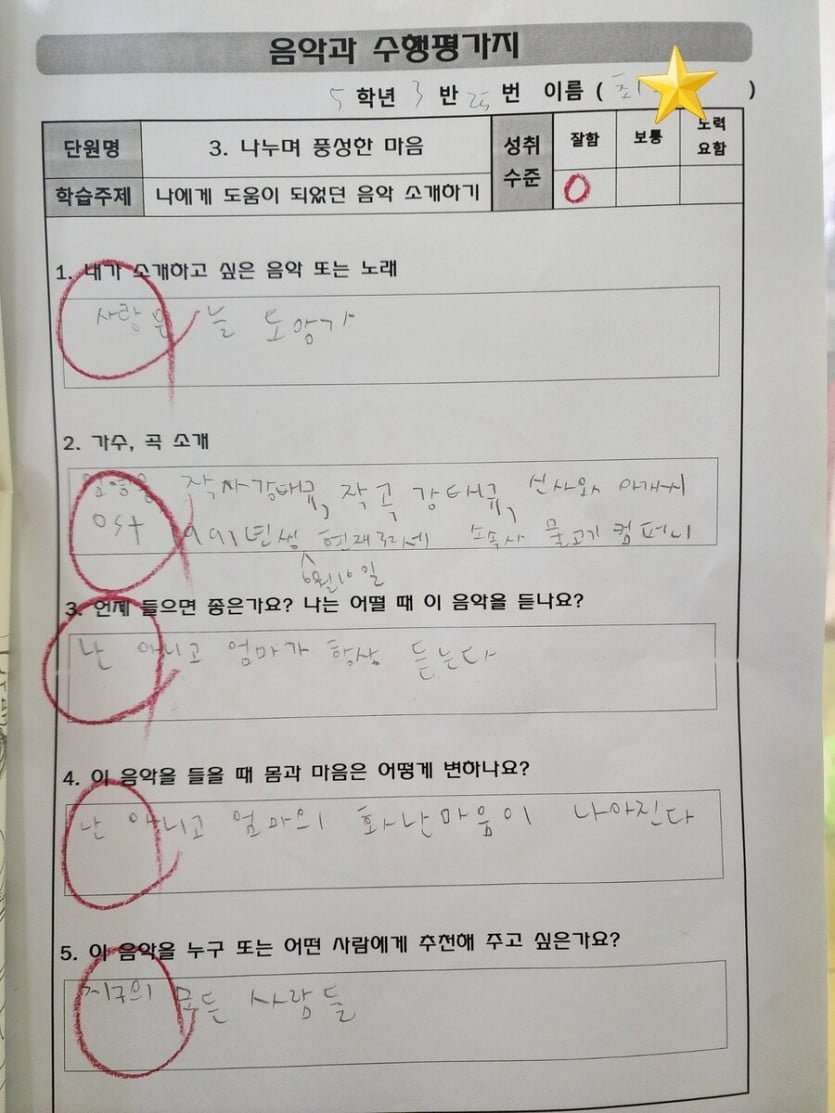 음악과 수행평가지
5 학년 3 반 번 이름 ( 최 )
단원명 3. 나누며 풍성한 마음 성취 수준 잘함 보통 노력 요함
학습주제 나에게 도움이 되었던 음악 소개하기 O
1. 내가 소개하고 싶은 음악 또는 노래
사랑은 늘 도망가
2. 가수, 곡 소개
임영웅 작사강태규, 작곡 강태규, 신사와 아가씨
OST 1991년생 현재 세 소속사 물고기 컴퍼니
6월 16일
3. 언제 들으면 좋은가요? 나는 어떨 때 이 음악을 듣나요?
난 아니고 엄마가 항상 듣는다
4. 이 음악을 들을 때 몸과 마음은 어떻게 변하나요?
난 아니고 엄마의 화난마음이 나아진다
5. 이 음악을 누구 또는 어떤 사람에게 추천해 주고 싶은가요?
지구의 모든 사람들